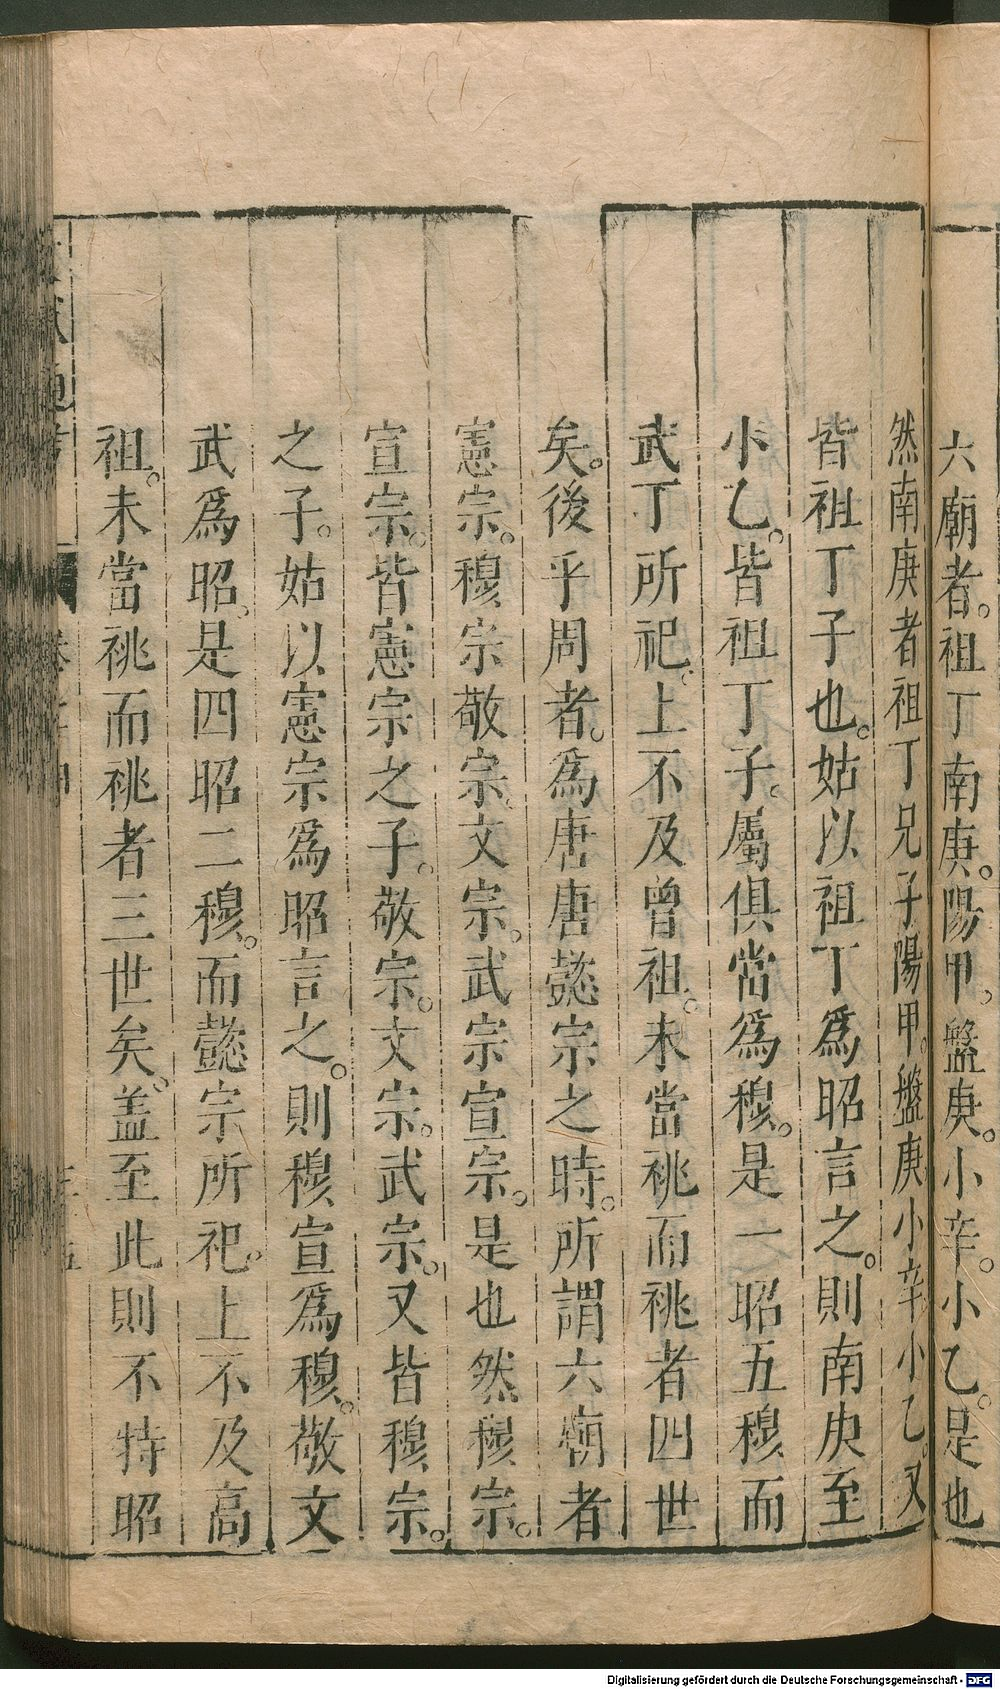 六廟者。祖丁南庚。陽甲。盤庚。小辛。小乙。是也
然南庚者祖丁兄子陽甲。盤庚小辛小乙。又
皆祖丁子也。姑以祖丁爲昭言之。則南庚至
小乙。皆祖丁子。屬俱當爲穆。是一昭五穆而
武丁所祀。上不及曾祖。未當祧而祧者四世
矣。後乎周者。爲唐唐懿宗之時。所謂六廟者
憲宗。穆宗敬宗。文宗。武宗宣宗。是也然穆宗。
宣宗。皆憲宗之子。敬宗。文宗。武宗。又皆穆宗。
之子。姑以憲宗爲昭言之。則穆宣爲穆。敬文
武爲昭。是四昭二穆。而懿宗所祀。上不及高
祖。未當祧而祧者三世矣。盖至此則不特昭
Digitalisierung gefördert durch die Deutsche Forschungsgemeinschaft - DFG